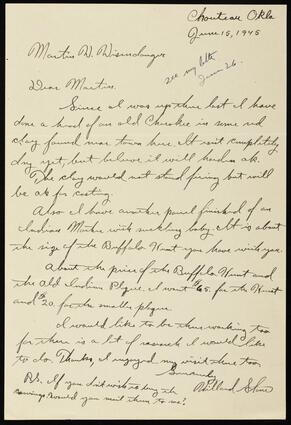 Chouteau Okla
June 15, 1945
Martin W. Wiesendanger
see my letter
June 26.
Dear Martin.
Since I was up there last I have
done a head of an old Cherokee in some red
clay found near town here. It isn't completely
dry yet, but believe it will harden ok.
The clay would not stand firing but will
be ok for casting.
Also I have another panel finished of an
Indian Mother with suckling baby. It is about
the size of the Buffalo Hunt you have with you.
About the price of the Buffalo Hunt and
the Old Indian Plaque. I want $65. for the Hunt
and $20. for the smaller plaque.
I would like to be there working too
for there is a lot of research I would like
to do. Thanks, I enjoyed my visit there too.
Sincerely
Willard Stone
P.S. If you don't wish to buy the
carvings would you mail them to me?